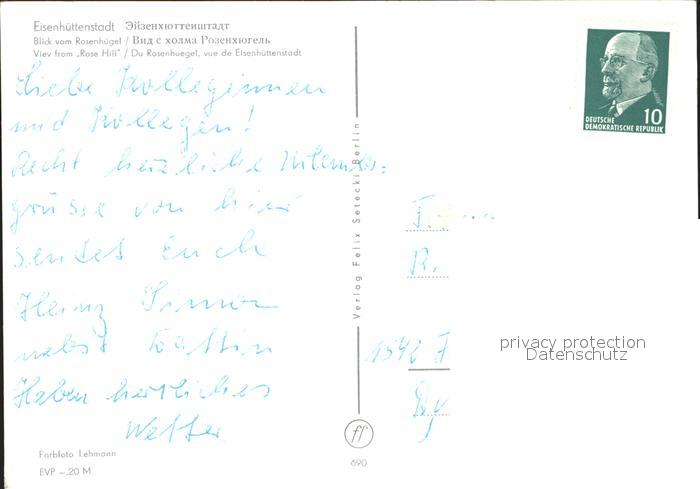 Eisenhüttenstadt Эйзенхюттенштадт
Blick vom Rosenhügel / Вид с холма Розенхюгель
Viev from „Rose Hill" / Du Rosenhuegel, vue de Eisenhüttenstadt
Liebe Kolleginnen
und Kollegen!
Recht herzliche Urlaubs=
grüsse von hier
sendet Euch
Heinz Simon
nebst Gattin
Haben herrliches
Wetter
Farbfoto Lehmann
EVP –.20 M
Verlag Felix Setecki Berlin
ff
690
10
DEUTSCHE
DEMOKRATISCHE REPUBLIK
F.
R.
1542 F
privacy protection
Datenschutz